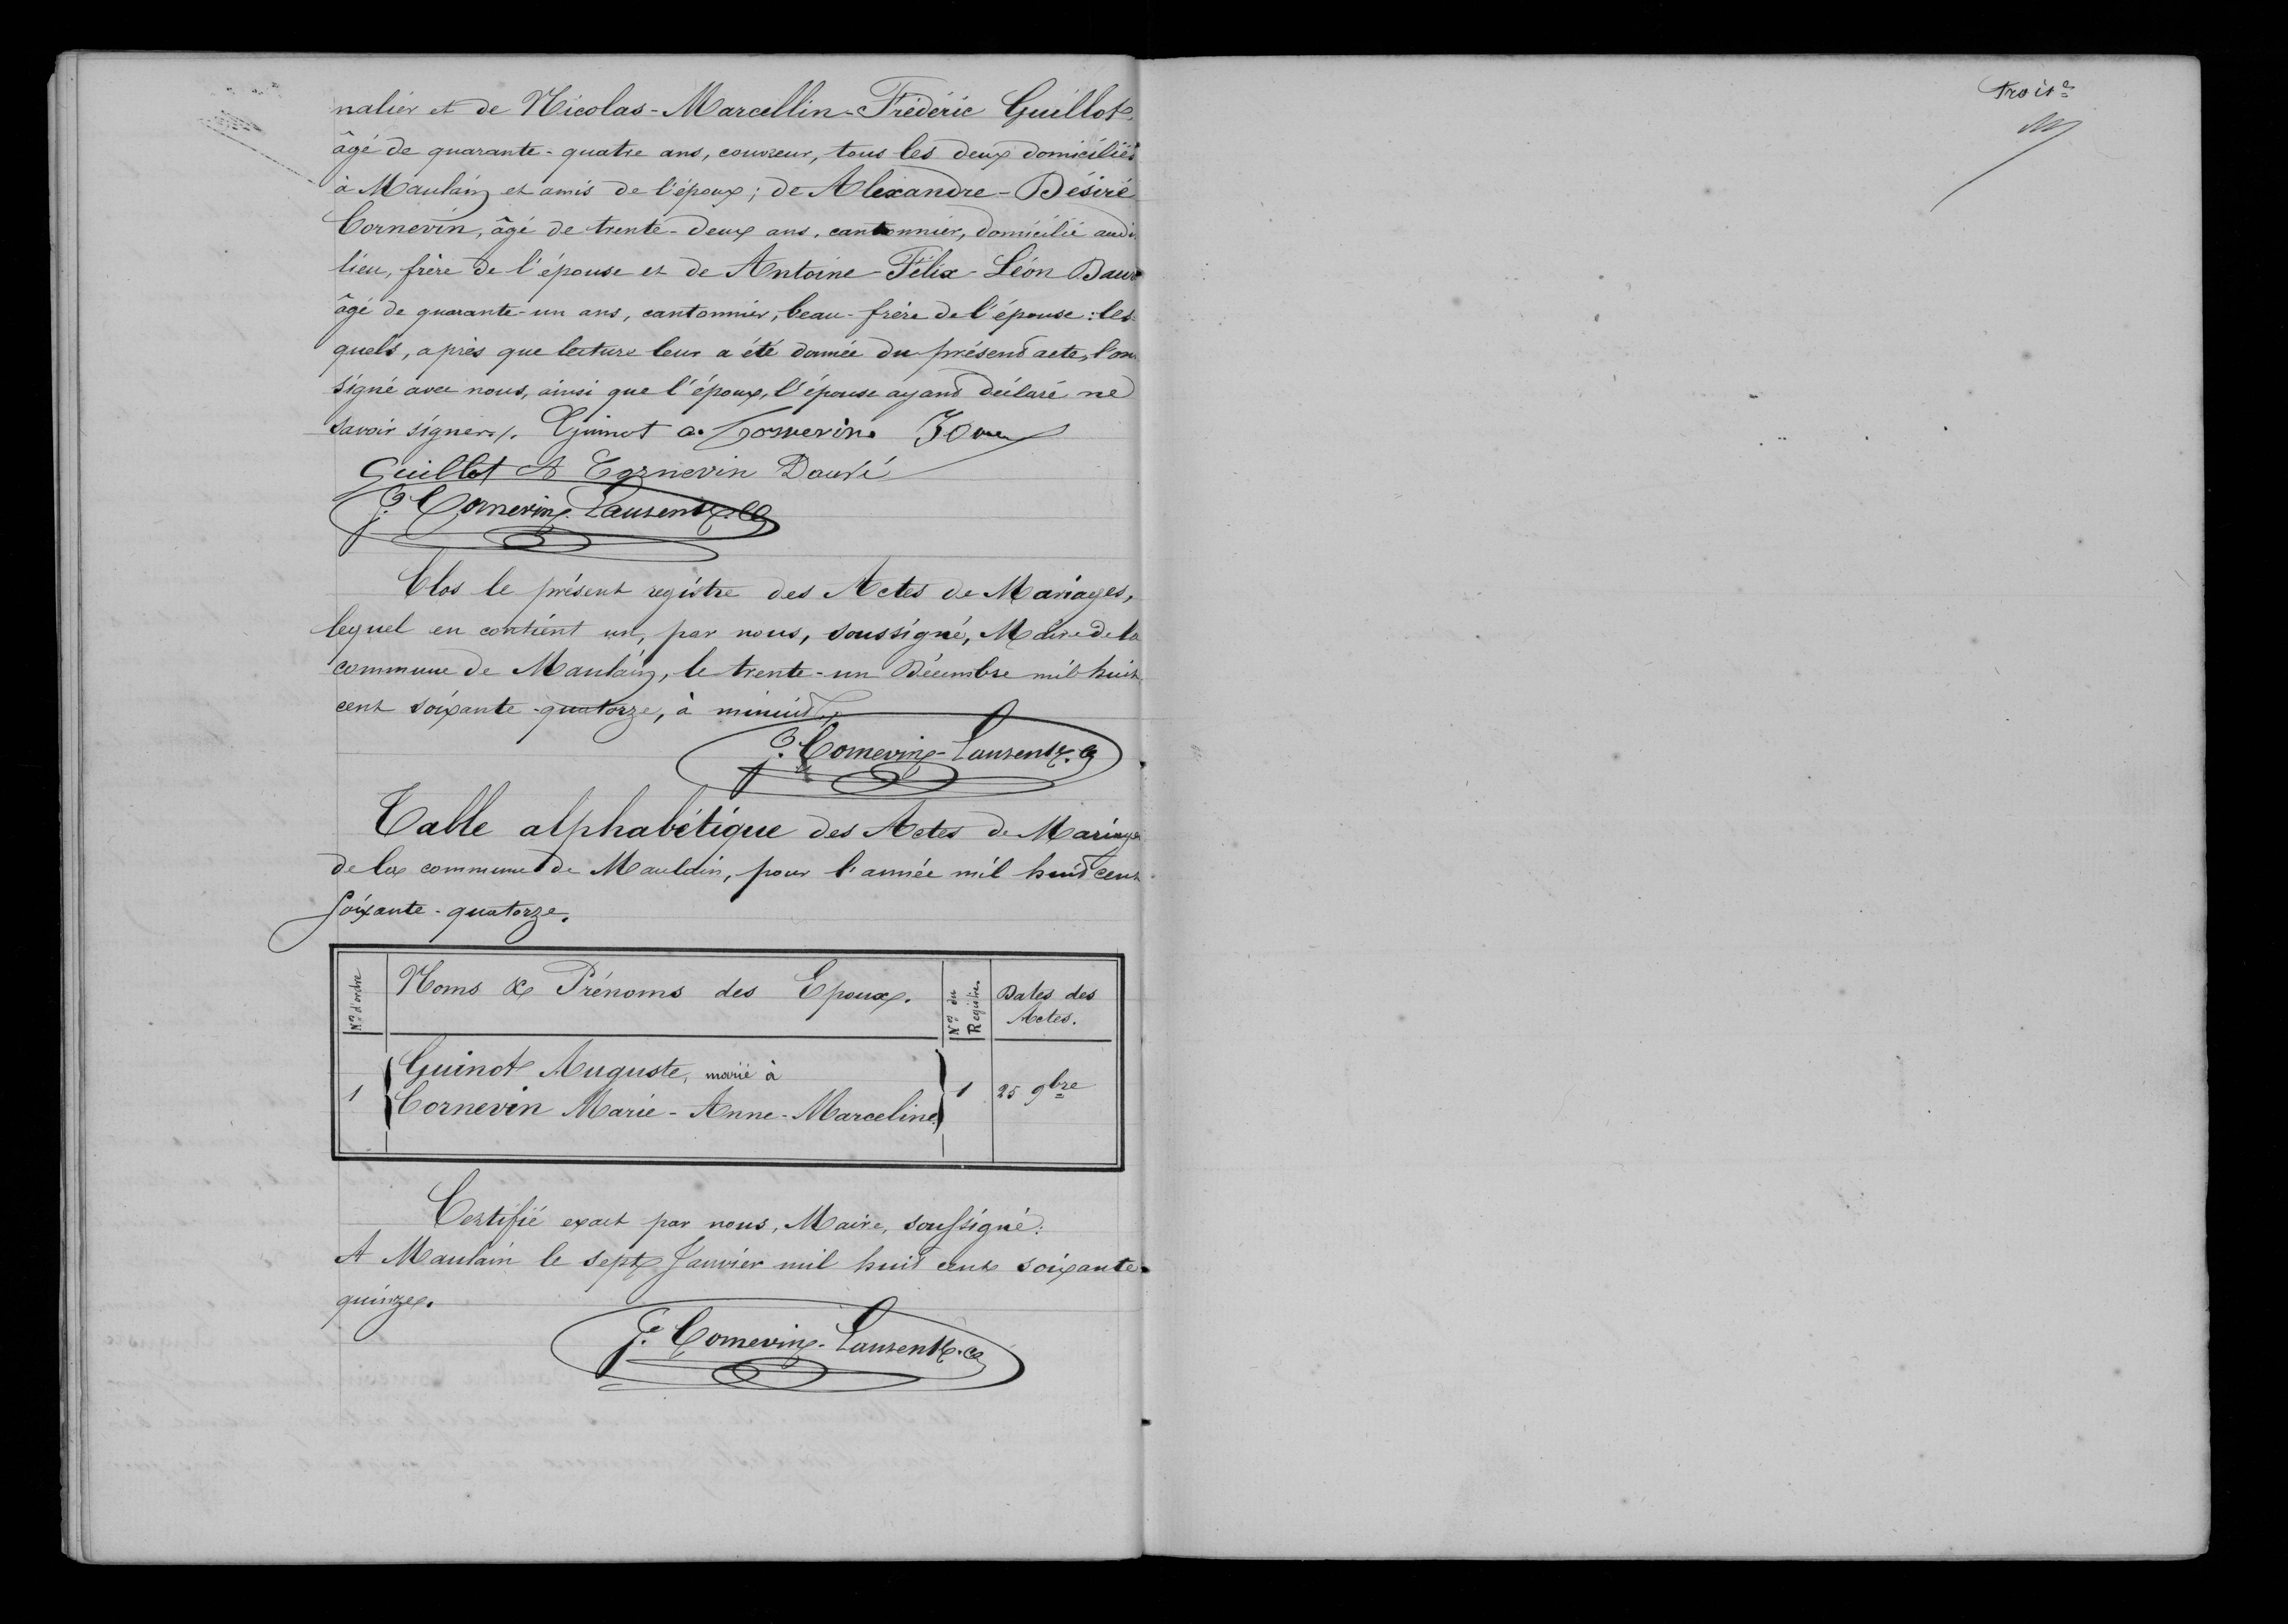 nalier et de Nicolas-Marcellin-Frédéric Guillot,
âgé de quarante-quatre ans, couvreur, tous les deux domiciliés
à Maulain et amis de l'époux; de Alexandre-Désiré
Cornevin, âgé de trente-deux ans, cantonnier, domicilié audit
lieu, frère de l'épouse et de Antoine-Félix-Léon
âgé de quarante-un ans, cantonnier, beau-frère de l'épouse: les-
quels, après que lecture leur a été donnée du présent acte, l'ont
signé avec nous, ainsi que l'époux, l'épouse ayant déclaré ne
savoir signer./. Guinot a. Cornevin
Guillot A Cornevin Dauvé
J. Cornevin-Laurent
Clos le présent registre des Actes de Mariages,
lequel en contient un, par nous, soussigné, Maire de la
commune de Maulain, le trente-un Décembre mil huit
cent soixante-quatorze, à minuit.
J. Cornevin-Laurent
Table alphabétique des Actes de Mariages
de la commune de Maulain, pour l'année mil huit cent
soixante-quatorze.
Nos d'ordre
Noms & Prénoms des Epoux.
Nos du Registre.
Dates des
Actes.
1
Guinot Auguste, marié à
Cornevin Marie-Anne-Marceline
1
25 9bre
Certifié exact par nous, Maire, soussigné:
A Maulain le sept Janvier mil huit cent soixante-
quinze.
J. Cornevin-Laurent
Trois